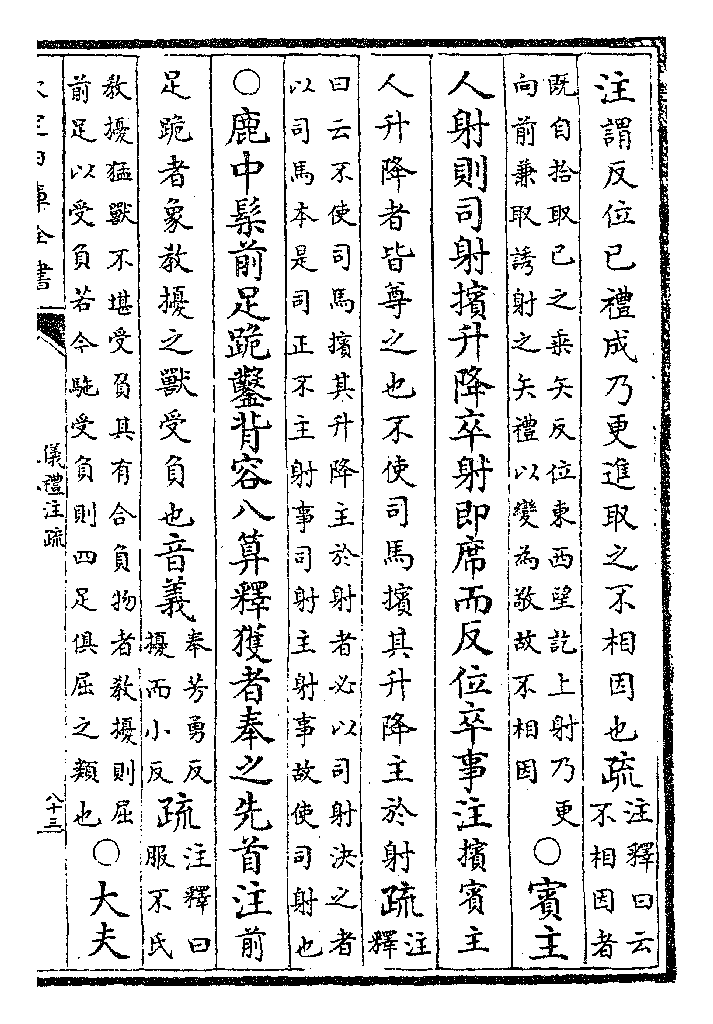 注謂反位已禮成乃更進取之不相因也疏注釋曰云
不相因者
既自拾取已之乗矢反位東西望訖上射乃更
向前兼取誘射之矢禮以變為敬故不相因○賓主
人射則司射擯升降卒射即席而反位卒事注擯賓主
人升降者皆尊之也不使司馬擯其升降主於射疏注
釋
曰云不使司馬擯其升降主於射者必以司射決之者
以司馬本是司正不主射事司射主射事故使司射也
○鹿中髤前足跪鑿背容八算釋獲者奉之先首注前
足跪者象教擾之獸受負也音義奉芳勇反
擾而小反疏注釋曰
服不氏
教擾猛獸不堪受負其有合負物者教擾則屈
前足以受負若今駞受負則四足俱屈之類也○大夫
儀禮注疏
八十三